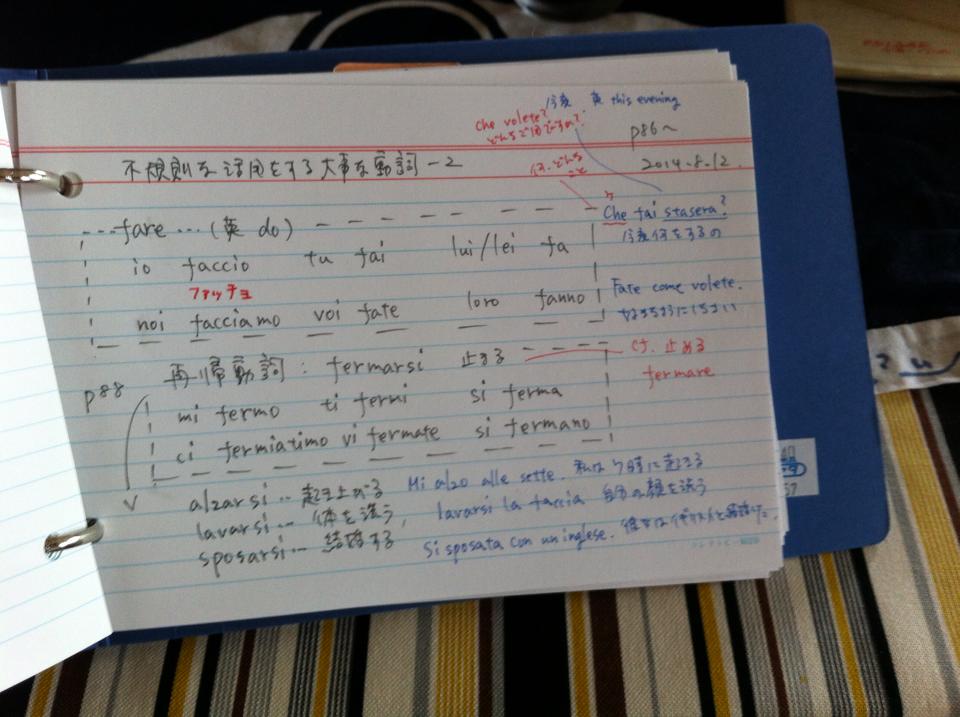 今夜 英 this evening
Che volete?
p86〜
2014.8.12.
不規則な活用をする大事な動詞-2
何・どんな
こと
Che fai stasera?
今夜何をするの
fare …(英 do)
io faccio tu fai lui/lei fa
ファッチョ
noi facciamo voi fate loro fanno
Fate come volete.
好きなようにしなさい
p88
再帰動詞: fermarsi 止まる
cf. 止める
fermare
mi fermo ti fermi si ferma
ci fermiatimo vi fermate si fermano
alzarsi … 起き上がる Mi alzo alle sette. 私は7時に起きる
lavarsi … 体を洗う, lavarsi la faccia 自分の顔を洗う
sposarsi … 結婚する Si sposata con un inglese. 彼女はイギリス人と結婚した.